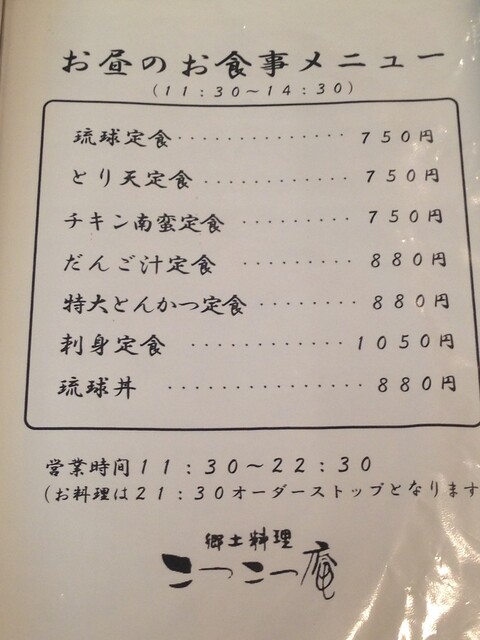 お昼のお食事メニュー
(11:30～14:30)
琉球定食・・・・・・・・・・・・・・750円
とり天定食・・・・・・・・・・・・750円
チキン南蛮定食・・・・・・・・・750円
だんご汁定食・・・・・・・・・・880円
特大とんかつ定食・・・・・・・・880円
刺身定食・・・・・・・・・・・・・1050円
琉球丼・・・・・・・・・・・・・・・880円
営業時間11:30～22:30
(お料理は21:30オーダーストップとなります
郷土料理
こつこつ庵